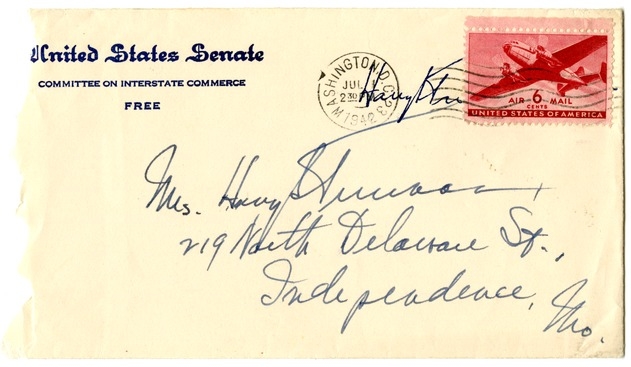 United States Senate
COMMITTEE ON INTERSTATE COMMERCE
FREE
WASHINGTON, D.C.
JUL
230 P
1942
AIR 6 MAIL
CENTS
UNITED STATES OF AMERICA
Mrs. Harry S Truman,
219 North Delaware St.,
Independence,
Mo.